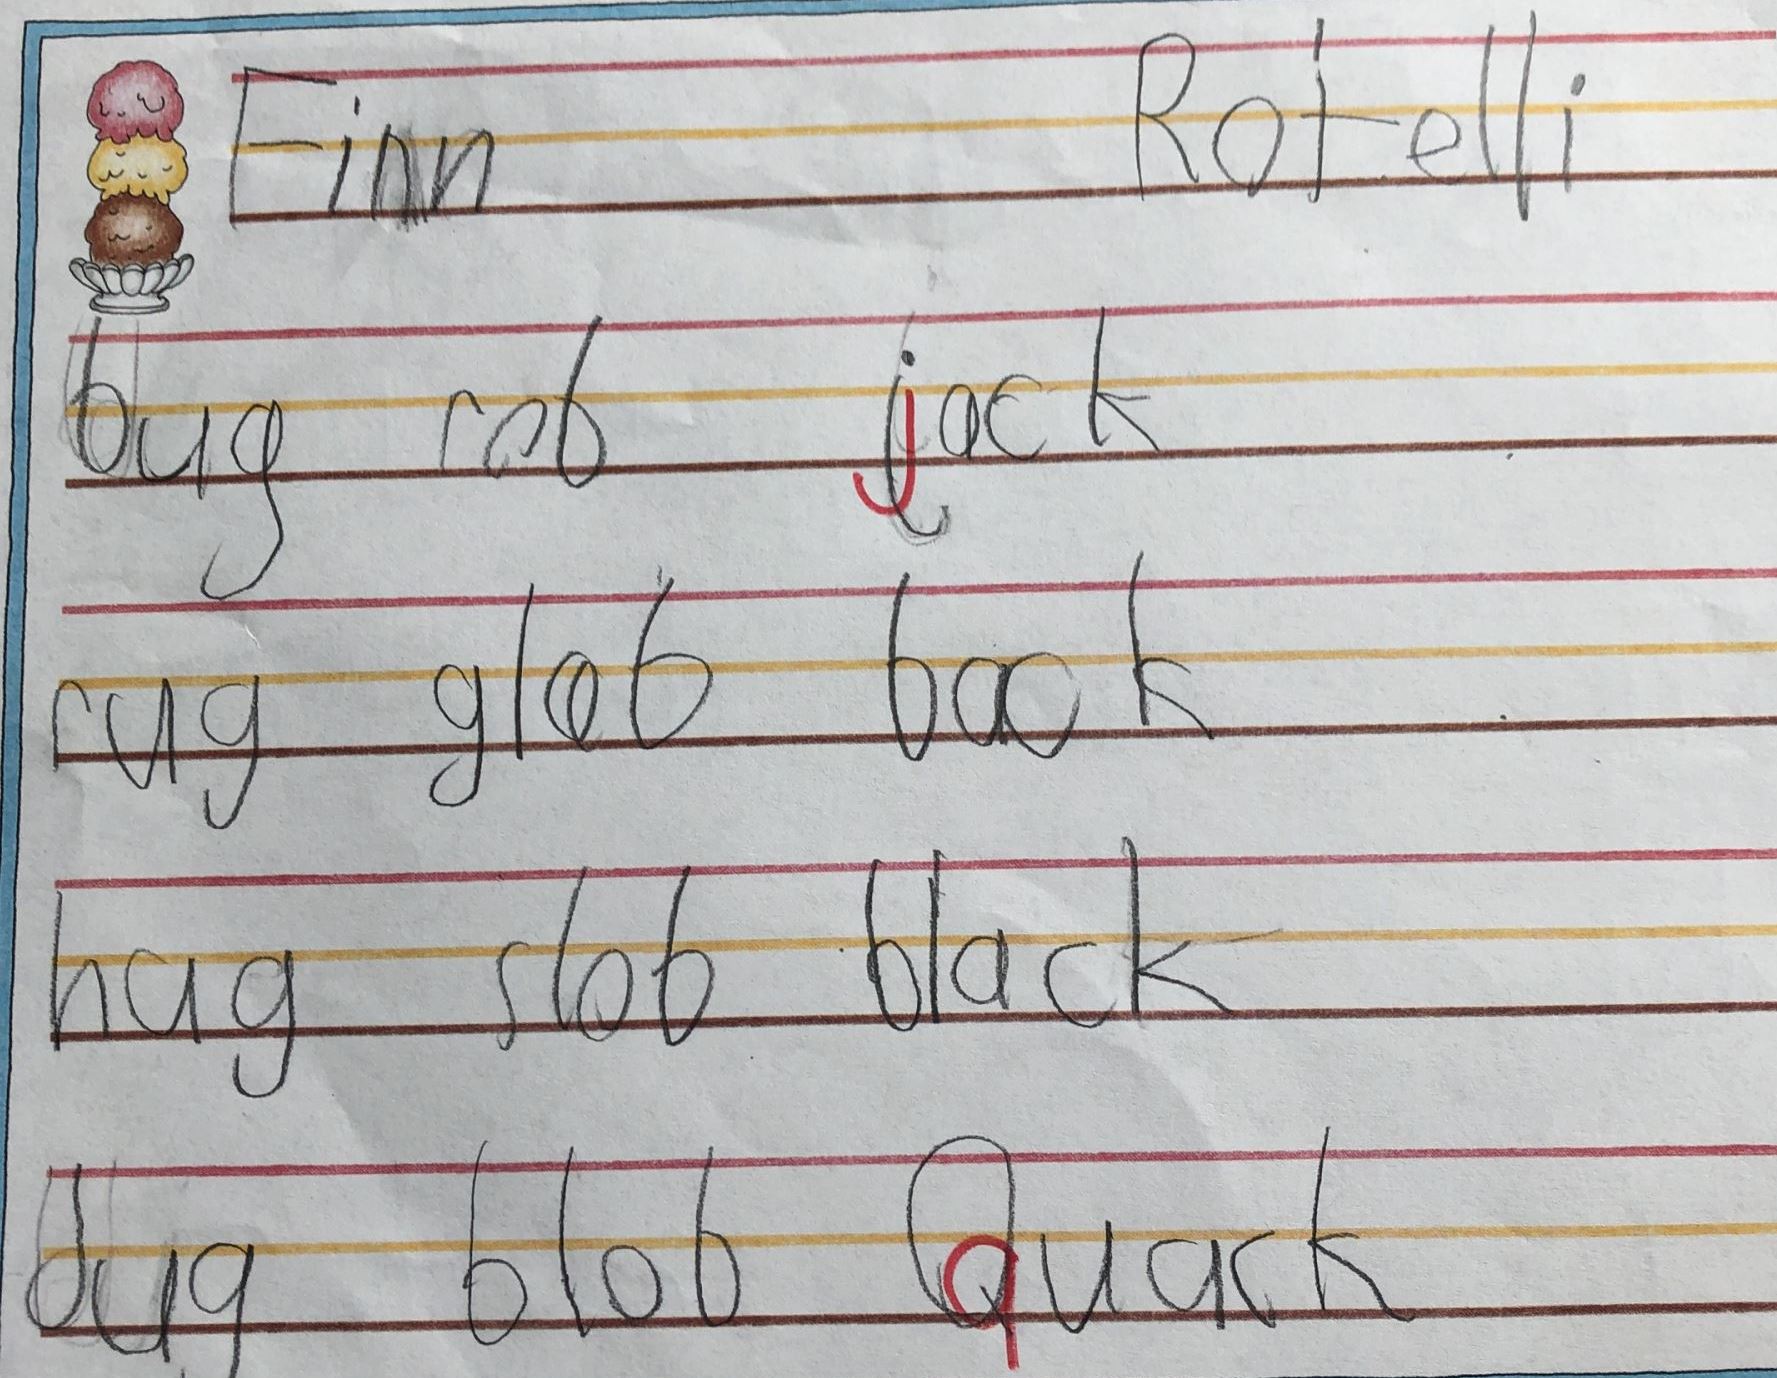 Finn Rotelli
bug rob jack
rug glob back
hug slob black
dug blob Quack